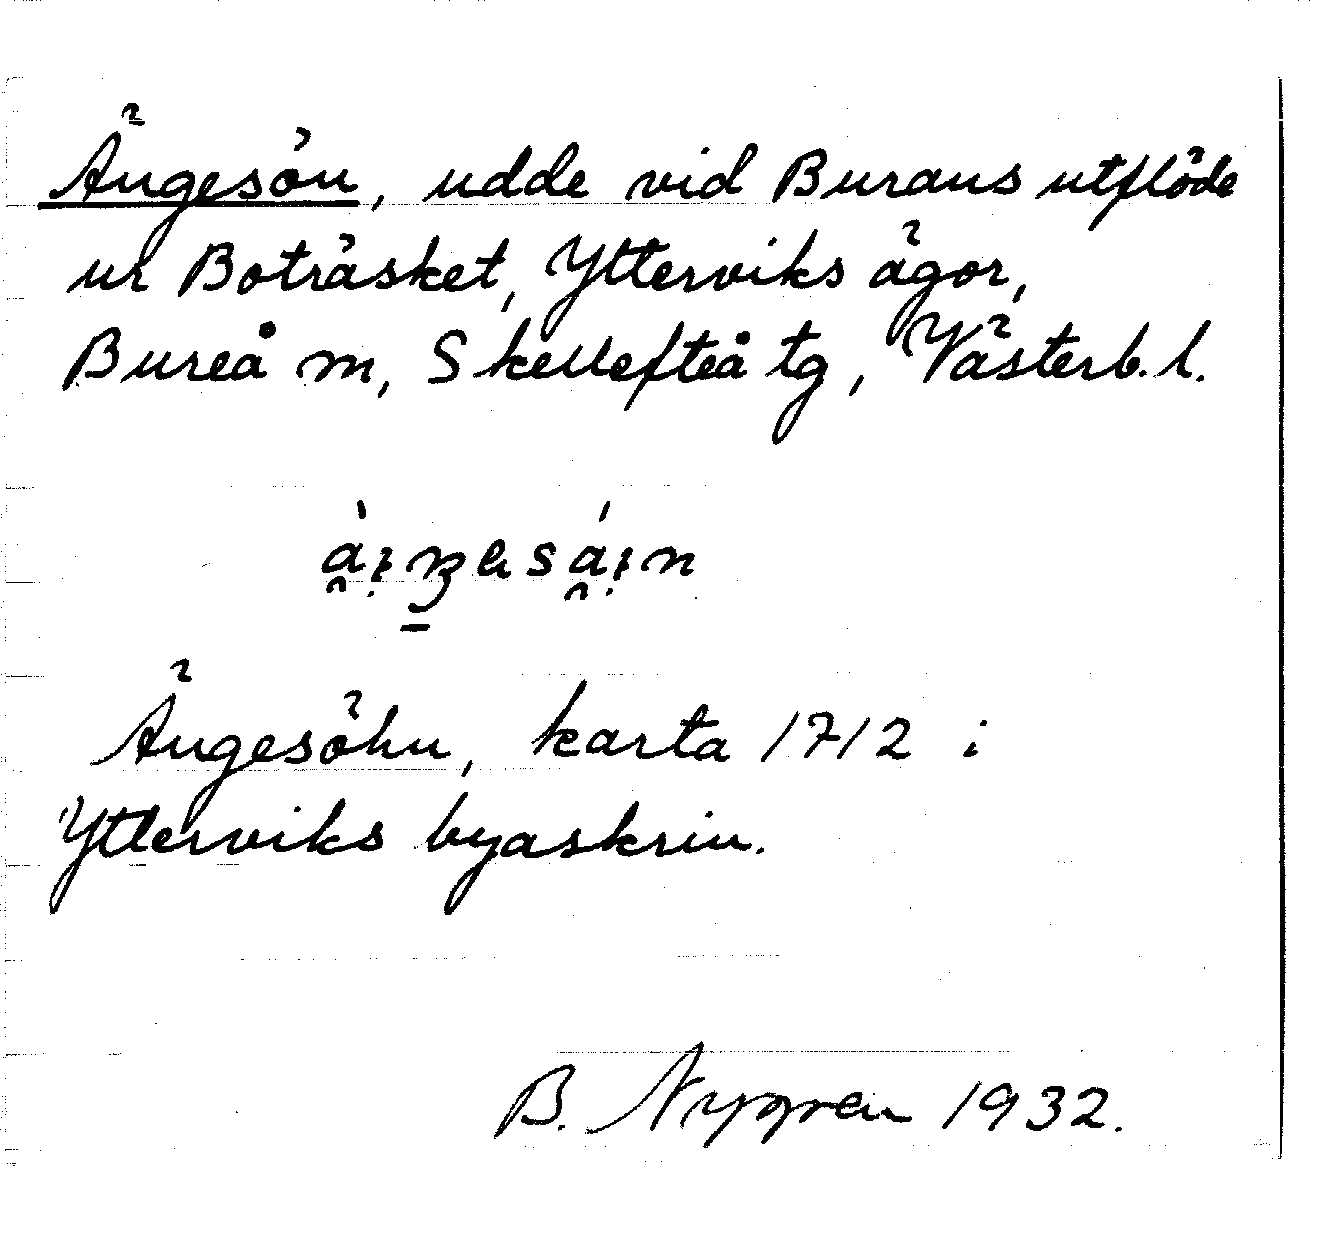 Ängesön, udde vid Burans utflöde
ur Boträsket, Ytterviks ägor,
Bureå m, Skellefteå tg, Västerb. l.
Ängesöhn, karta 1712 i
Ytterviks byaskrin.
B. Nygren 1932.